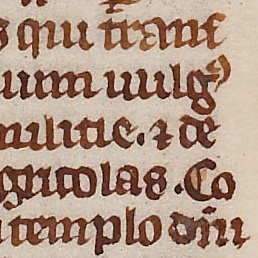 s qui trans
uum uulgꝰ
militie. ⁊ de
agricolas. Co
templo dñi